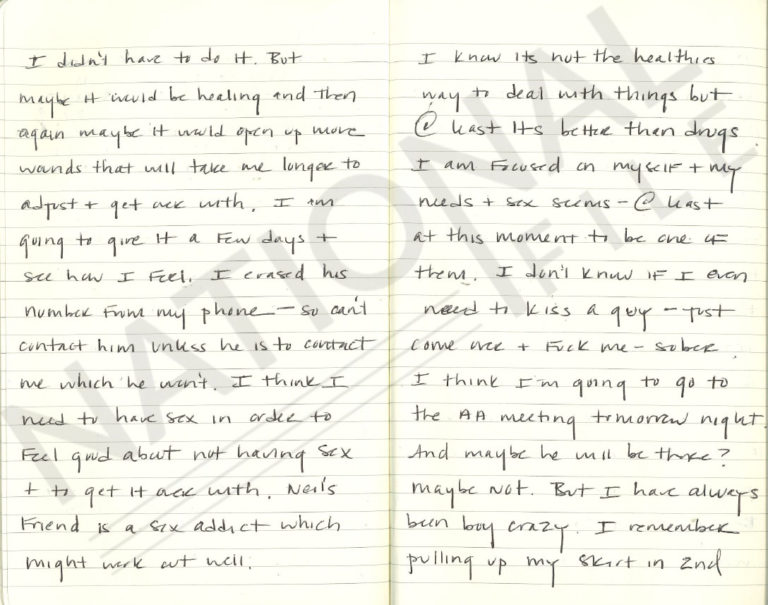 I didn't have to do it. But
maybe it would be healing and then
again maybe it would open up more
wounds that will take me longer to
adjust + get over with. I am
going to give it a few days +
see how I feel. I erased his
number from my phone – so can't
contact him unless he is to contact
me which he won't. I think I
need to have sex in order to
feel good about not having sex
+ to get it over with. Neil's
friend is a sex addict which
might work out well.
I know its not the healthies
way to deal with things but
@ least its better than drugs.
I am focused on myself + my
needs + sex seems – @ least
at this moment to be one of
them. I don't know if I even
need to kiss a guy – just
come over + fuck me – sober.
I think I'm going to go to
the AA meeting tomorrow night.
And maybe he will be there?
maybe not. But I have always
been boy crazy. I remember
pulling up my skirt in 2nd
NATIONAL FILE